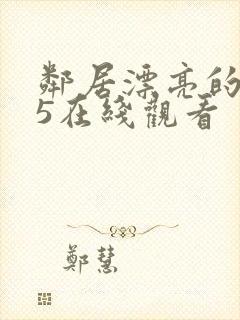 鄰居漂亮的
5在綫觀看
鄭慧